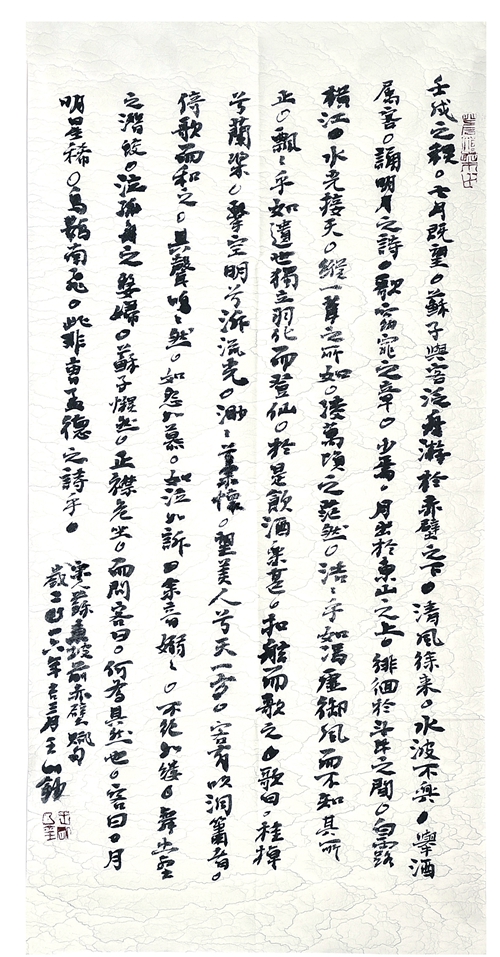 壬戌之秋。七月既望。蘇子與客泛舟游於赤壁之下。清風徐来。水波不興。舉酒
属客。誦明月之詩。歌窈窕之章。少焉。月出於東山之上。徘徊於斗牛之間。白露
橫江。水光接天。縱一葦之所如。凌萬頃之茫然。浩〻乎如馮虛御風而不知其所
止。飄〻乎如遺世獨立羽化而登仙。於是飲酒樂甚。扣舷而歌之。歌曰。桂棹
兮蘭槳。擊空明兮泝流光。渺〻兮予懷。望美人兮天一方。客有吹洞簫者。
倚歌而和之。其聲嗚〻然。如怨如慕。如泣如訴。余音嫋〻。不絕如縷。舞幽壑
之潛蛟。泣孤舟之嫠婦。蘇子愀然。正襟危坐。而問客曰。何為其然也。客曰。月
明星稀。烏鵲南飛。此非曹孟德之詩乎。
宋蘇東坡前赤壁賦句